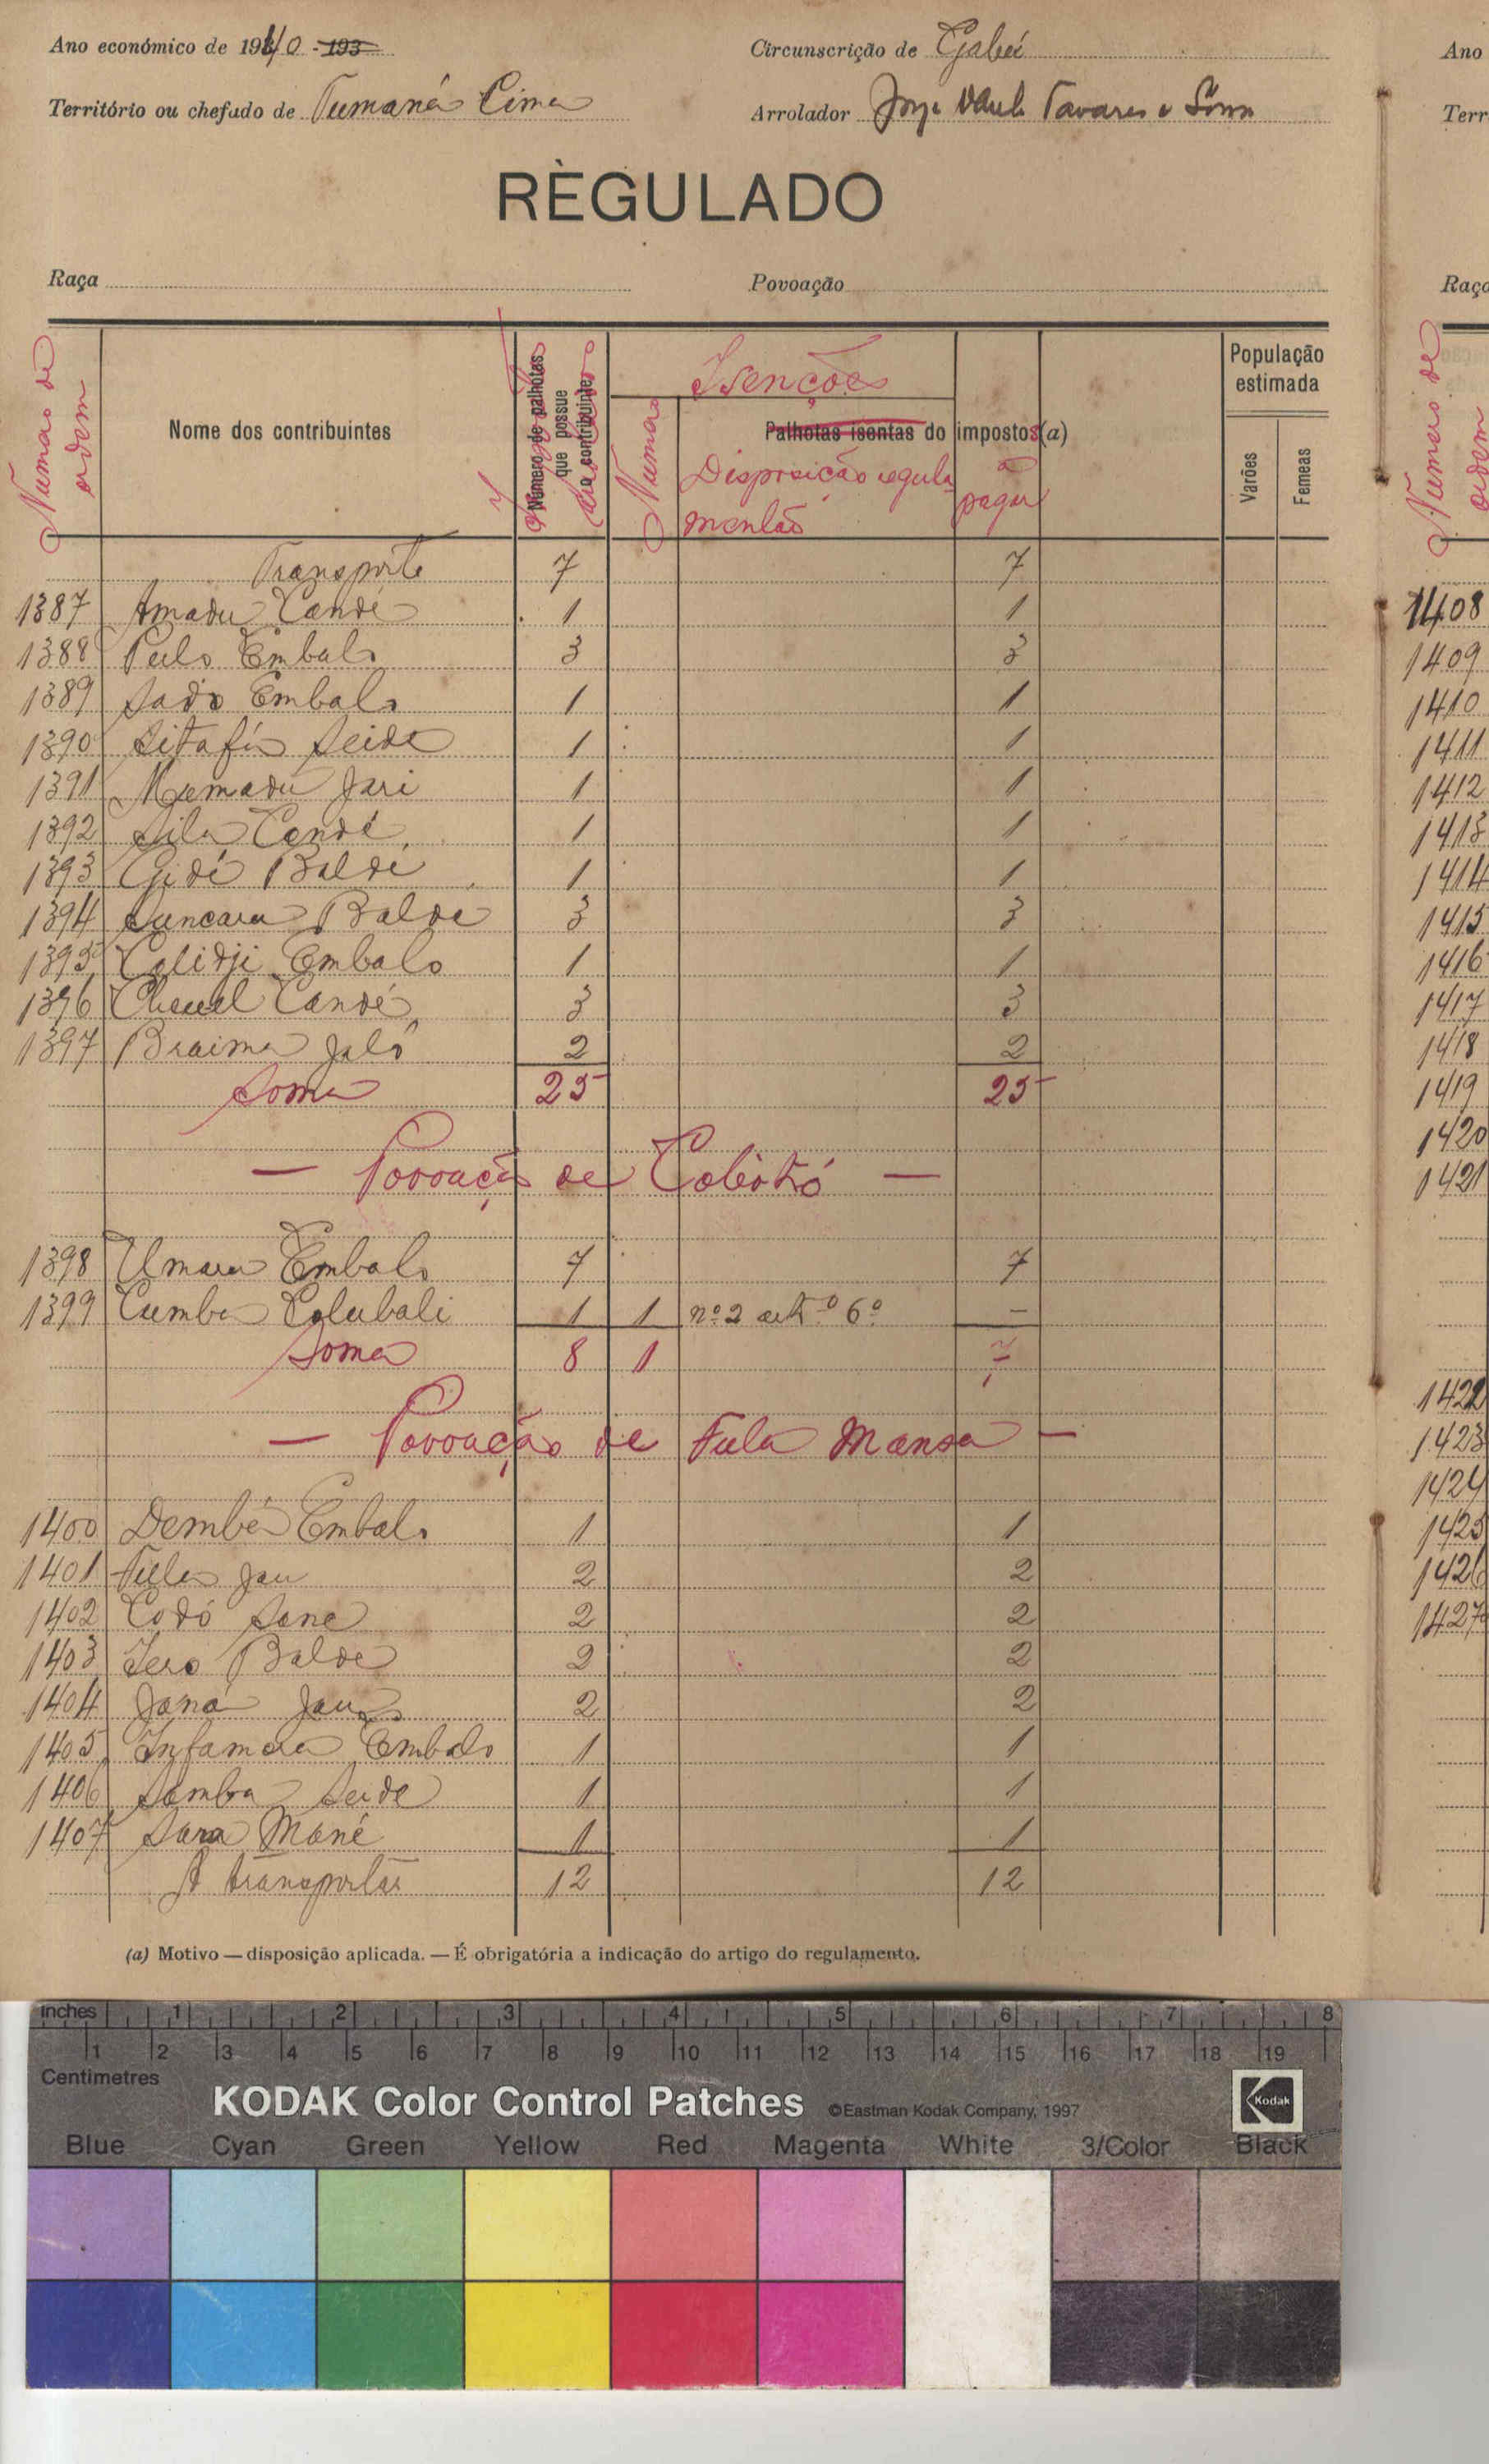 Ano económico de 1940 - 193
Circunscrição de Gabú
Território ou chefado de Tumaná Cima
Arrolador Jorge Tavares e
RÈGULADO
Raça
Povoação
Numero de ordem
Nome dos contribuintes
Número de palhotas que possue o contribuinte
Isenções
Numero
Palhotas isentas do impostos (a)
Disposição regulamentão
a pagar
População estimada
Varões
Femeas
Transporte 7 7
1387 Amadu Candé 1 1
1388 Pulo Embalo 3 3
1389 Sado Embalo 1 1
1390 Sitafá Seide 1 1
1391 Mamadu Jari 1 1
1392 Sila Candé 1 1
1393 Gidé Baldé 1 1
1394 Suncaru Balde 3 3
1395 Calidji Embalo 1 1
1396 Candé 3 3
1397 Braima Jaló 2 2
Soma 25 25
— Povoação de —
1398 Umaru Embalo 7 7
1399 Cumba Colubali 1 1 nº 2 artº 6º —
Soma 8 1 7
— Povoação de Fula Mansa —
1400 Dembá Embalo 1 1
1401 Fula Jau 2 2
1402 Codó Sane 2 2
1403 Iero Balde 2 2
1404 Janá Jau 2 2
1405 Infamara Embalo 1 1
1406 Samba Seide 1 1
1407 Sara Mané 1 1
A transportar 12 12
(a) Motivo — disposição aplicada. — É obrigatória a indicação do artigo do regulamento.
Ano
Terr
Raça
Numero de ordem
1408
1409
1410
1411
1412
1413
1414
1415
1416
1417
1418
1419
1420
1421
1422
1423
1424
1425
1426
1427
inches 1 2 3 4 5 6 7 8
1 2 3 4 5 6 7 8 9 10 11 12 13 14 15 16 17 18 19
Centimetres
KODAK Color Control Patches ©Eastman Kodak Company, 1997 Kodak
Blue Cyan Green Yellow Red Magenta White 3/Color Black